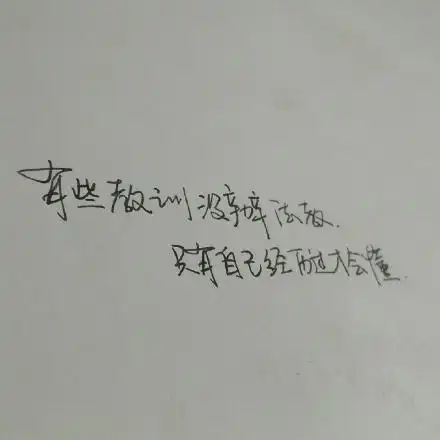 有些教训没办法教.
只有自己经历过才会懂.